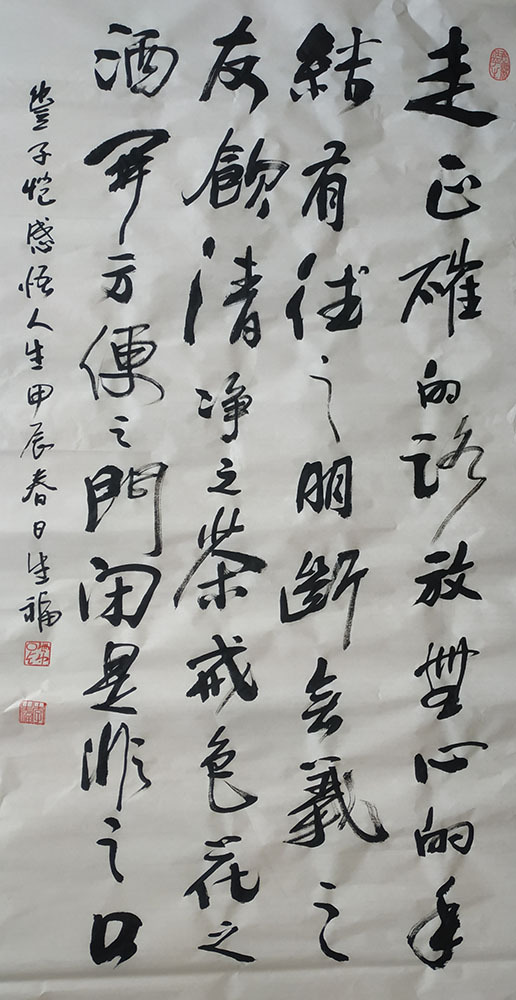 走正確的路放無心的手
結有德之朋斷無義之
友飲清净之茶戒色花之
酒開方便之門閉是非之口
豐子愷感悟人生甲辰春日生福